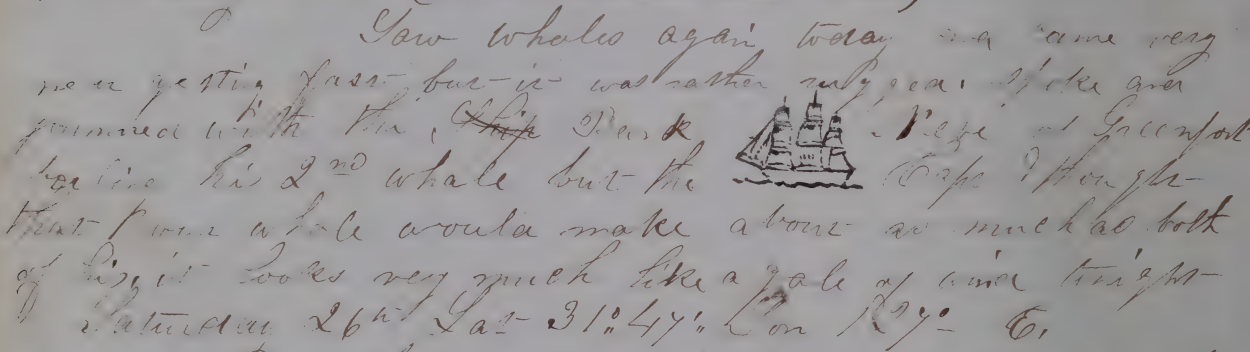 Saw whales again today and came very
near getting fast but it was rather rugged. Spoke and
gammed with the Ship Bark of Greenport
boiling his 2nd whale but the Capt thought
that our whale would make about as much as both
of his, it looks very much like a gale of wind tonight
Saturday 26th Lat 31°.47". Lon E.